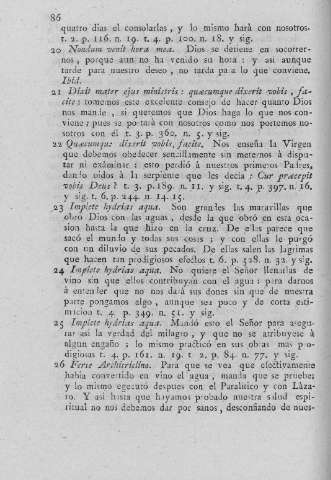 86
quatro dias el consolarlas, y lo mismo hará con nosotros.
t. 2. p. 116. n. 19. t. 4. p. 100. n. 18. y sig.
20 Nondum venit hora mea. Dios se detiene en socorrer-
nos, porque aun no ha venido su hora: y asi aunque
tarde para nuestro deseo, no tarda para lo que conviene.
Ibid.
21 Dixit mater ejus ministris: quæcumque dixerit vobis, fa-
cite: tomemos este excelente consejo de hacer quanto Dios
nos mande, si queremos que Dios haga lo que nos con-
viene; pues se portará con nosotros como nos portemos no-
sotros con él t. 3. p. 360. n. 5. y sig.
22 Quæcumque dixerit vobis, facite. Nos enseña la Virgen
que debemos obedecer sencillamente sin meternos á dispu-
tar ni exâminar: esto perdió á nuestros primeros Padres,
dando oidos á la serpiente que les decia: Cur præcepit
vobis Deus? t. 3. p. 189. n. 11. y sig. t. 4. p. 397. n. 16.
y sig. t. 6. p. 244. n. 14. 15.
23 Implete hydrias aqua. Son grandes las maravillas que
obró Dios con las aguas, desde la que obró en esta oca-
sion hasta la que hizo en la cruz. De ellas parece que
sacó el mundo y todas sus cosas; y con ellas le purgó
con un diluvio de sus pecados. De ellas salen las lagrimas
que hacen tan prodigiosos efectos t. 6. p. 528. n. 32. y sig.
24 Implete hydrias aqua. No quiere el Señor llenarlas de
vino sin que ellos contribuyan con el agua: para darnos
á entender que no nos dará sus dones sin que de nuestra
parte pongamos algo, aunque sea poco y de corta esti-
macion t. 4. p. 349. n. 51. y sig.
25 Implete hydrias aqua. Mandó esto el Señor para asegu-
rar asi la verdad del milagro, y que no se atribuyese á
algun engaño: lo mismo practicó en sus obras mas pro-
digiosas t. 4. p. 161. n. 19. t. 2. p. 84. n. 77. y sig.
26 Ferte Architriclino. Para que se vea que efectivamente
había convertido en vino el agua, manda que se pruebe;
y lo mismo egecutó despues con el Paralitico y con Láza-
ro. Y asi hasta que hayamos probado nuestra salud espi-
ritual no nos debemos dar por sanos, desconfiando de nues-